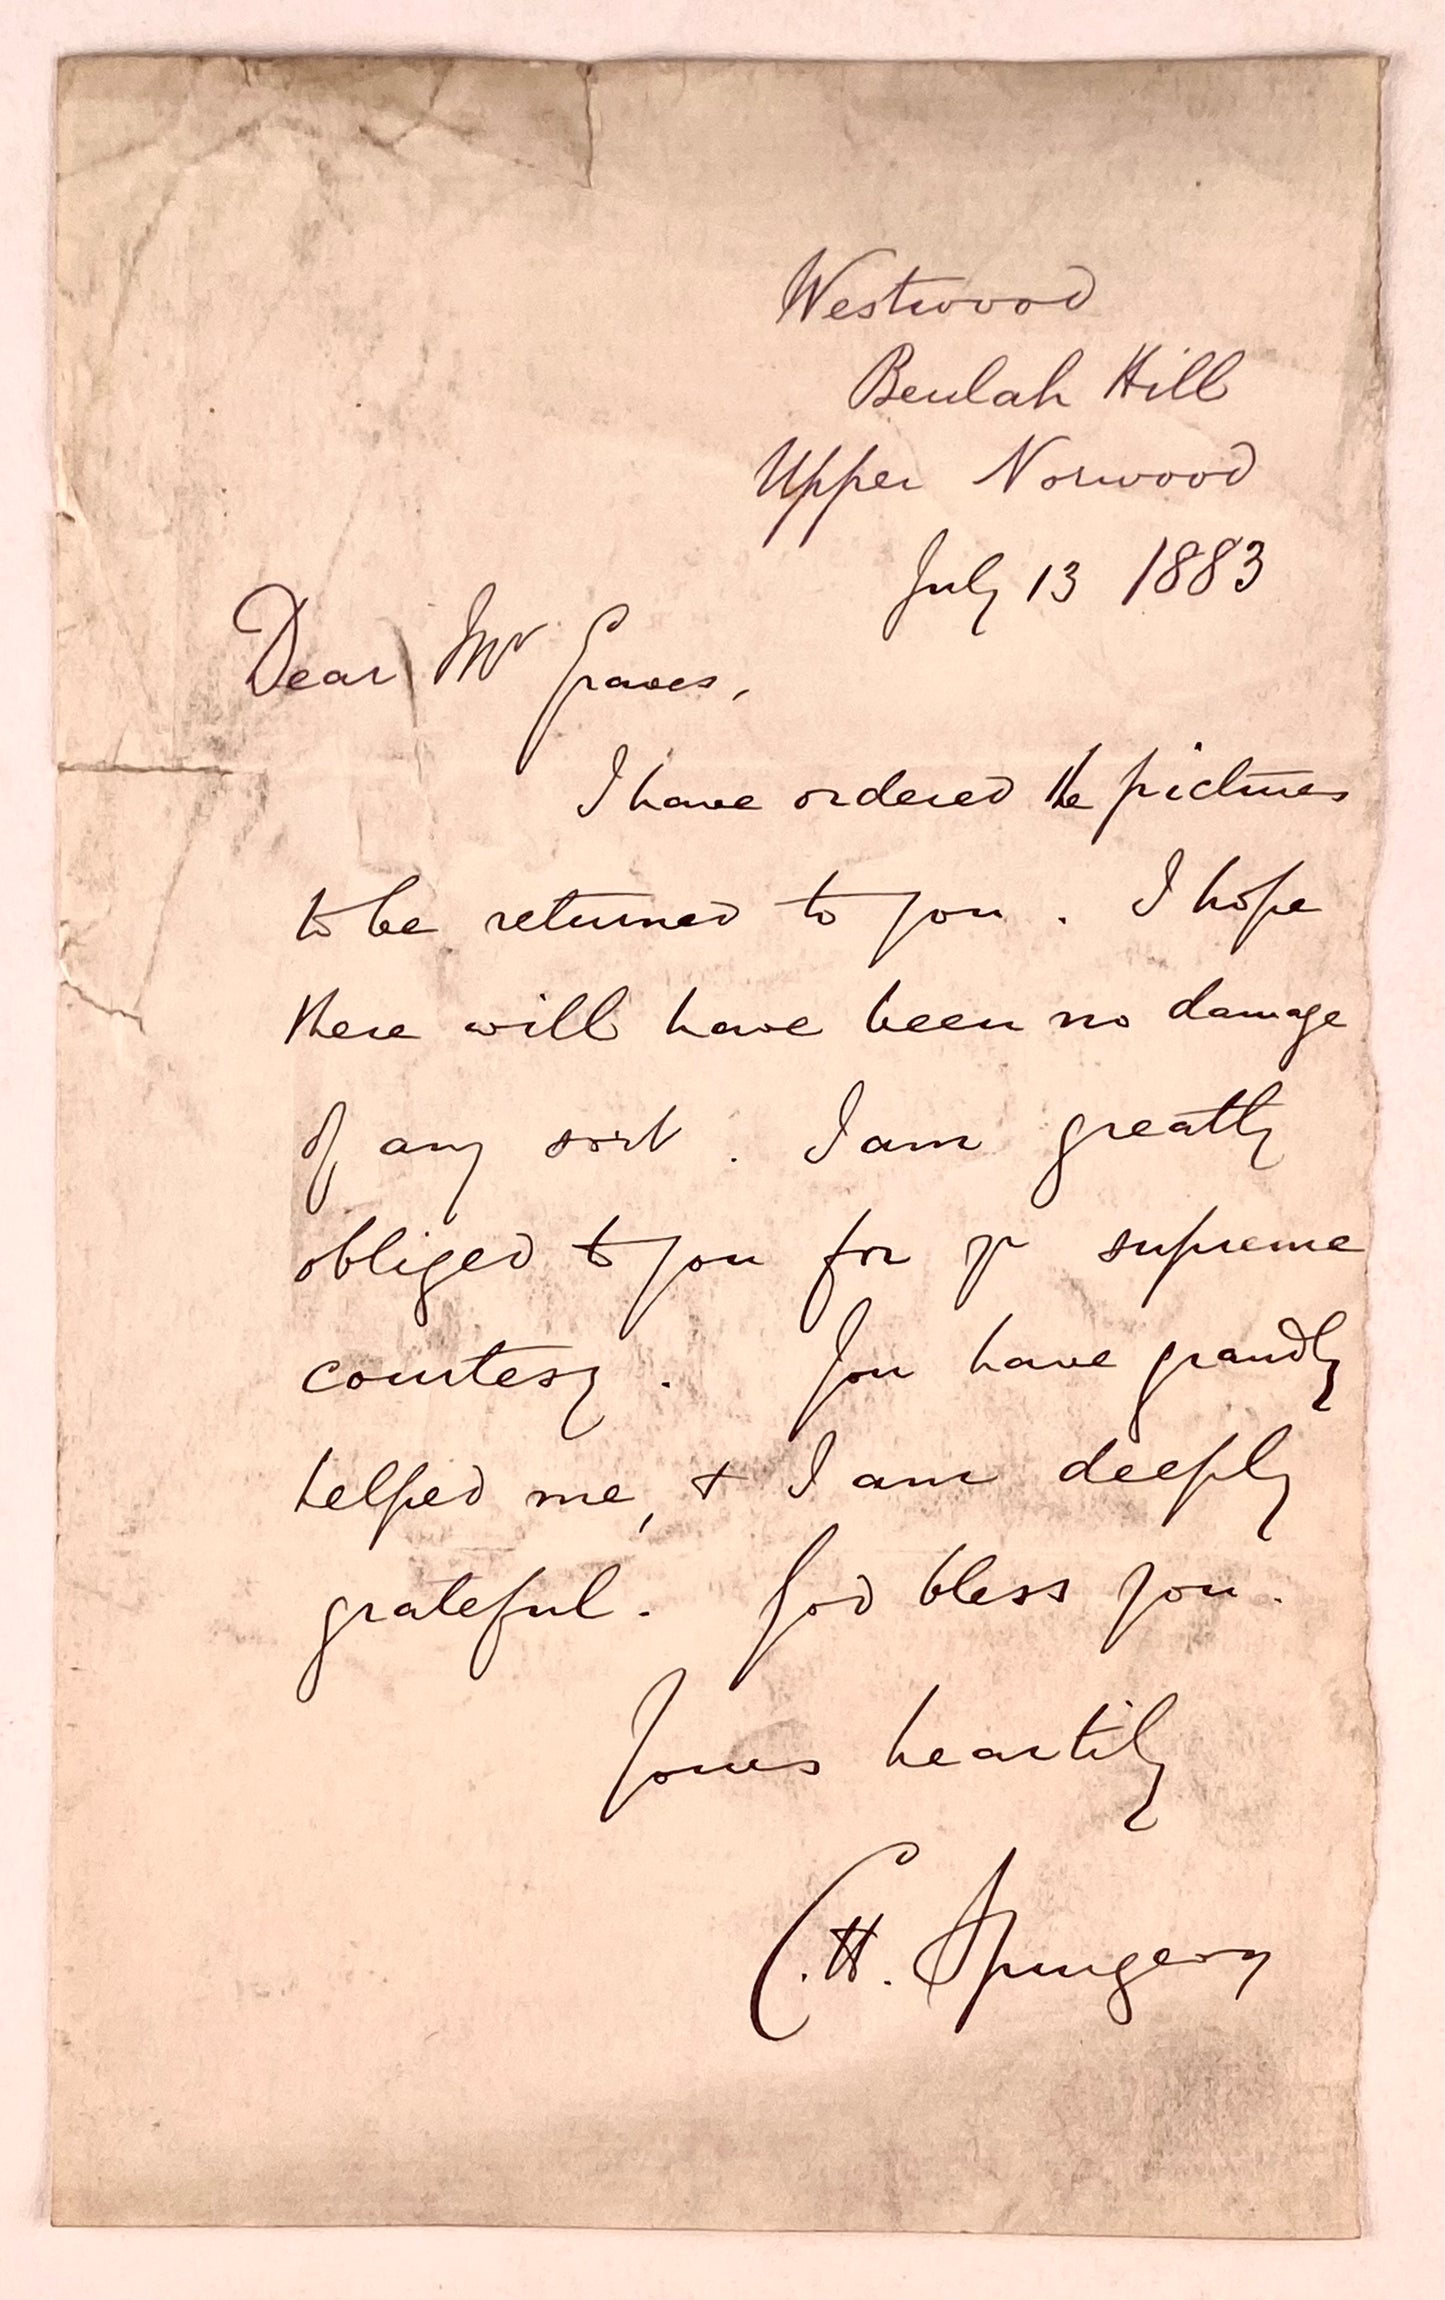 Westwood
Beulah Hill
Upper Norwood
July 13 1883
Dear Mr Graves,
I have ordered the pictures
to be returned to you. I hope
there will have been no damage
of any sort. I am greatly
obliged to you for yr supreme
courtesy. You have grandly
helped me, & I am deeply
grateful. God bless you.
Yours heartily
C. H. Spurgeon